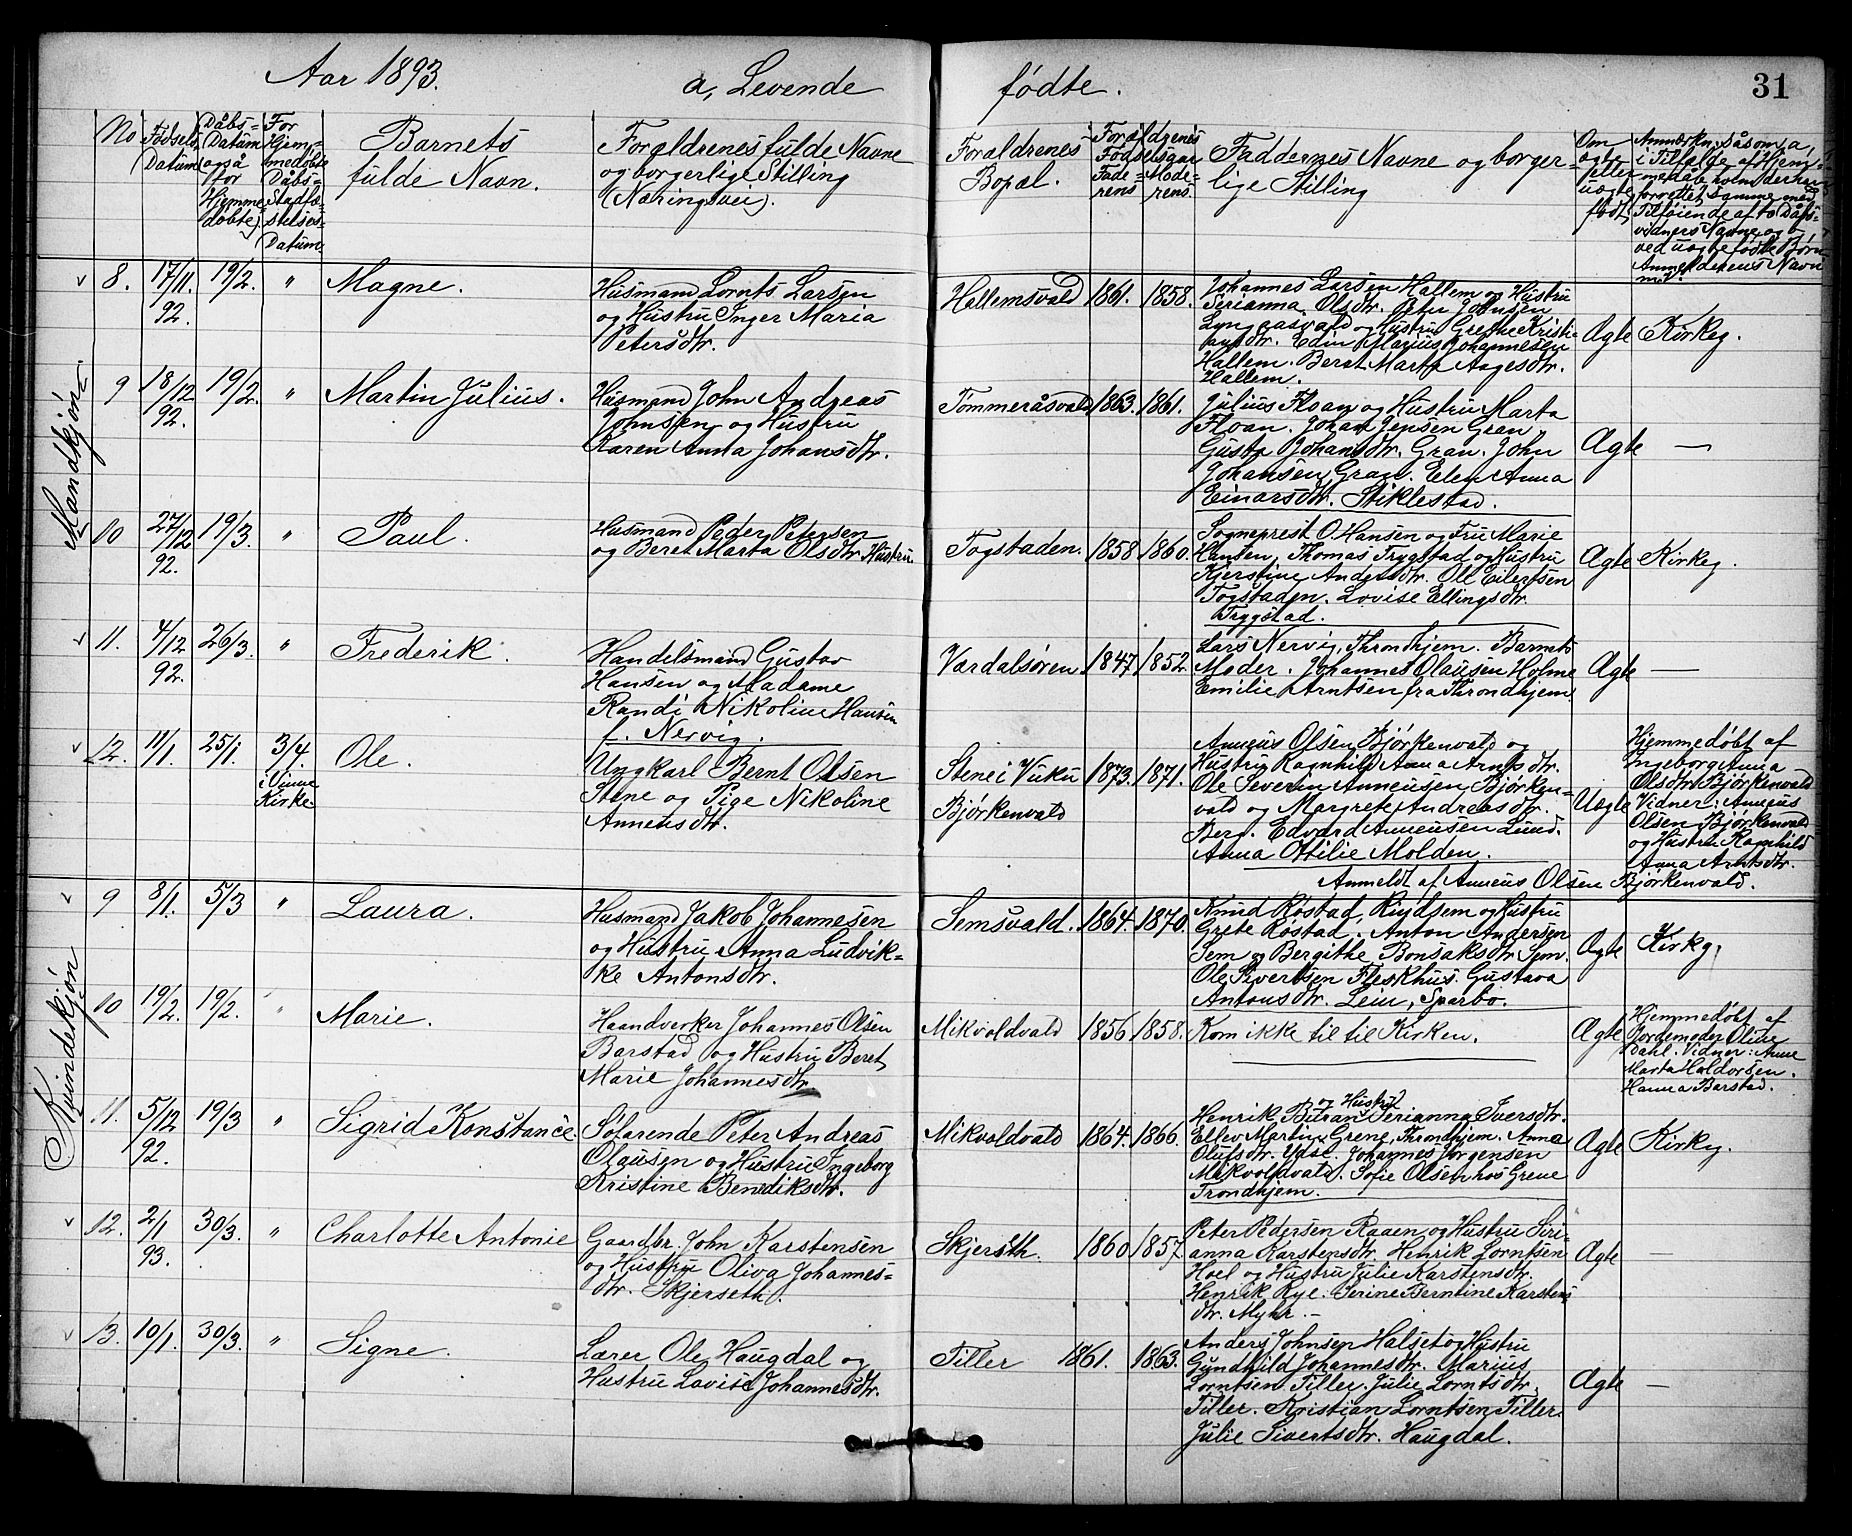 Aar 1893. a, Levende fødte. 31
No
Fødsels
Datum
Dåbs=
Datum
også
for
Hjemme
døbte.
For
Hjem=
medøbte
Dåbs=
Stadfæ
stelses=
Datum
Barnets
fulde Navn.
Forældrenes fulde Navne
og borgerlige Stilling
(Næringsvei).
Forældrenes
Bopæl.
Forældrenes
Fødselsaar
Fade=
rens
Mode=
rens.
Faddernes Navne og borger
lige Stilling
Om
ægte
eller
uægte
født
Anmærkn. såsom a,
i Tilfælge af Hjem=
medåb hvem der har
forrettet Samme med
Tilføiende af to Dåbs=
vidners Navne og b
ved uægte fødte Børn
Anmelderens Navn
m.v.
Mandkjøn
8. 17/11. 92. 19/2. " Magne.
Husmand Lornts Larsen
og Hustru Inger Maria
Petersdtr.
Hallemsvald 1861. 1858.
Johannes Larsen Hallem og Hustru
Serianna Olsdtr. Peter Johnsen
Lyngaasvald og Hustru Grethe Kristi=
ansdtr. Edin Marius Johannesen
Hallem. Beret Marta Aagesdtr.
Hallem.
Ægte Kirkeg.
9 18/12 92. 19/2. " Martin Julius.
Husmand John Andreas
Johnsen og Hustru
Karen Anna Johansdtr.
Tømmeråsvald 1863. 1861.
Julius Floan og Hustru Marta
Floan. Johan Jensen Gran
Gusta Johansdtr. Gran. John
Johansen Gran. Elen Anna
Einarsdtr. Stiklestad.
Ægte —
10 27/12 92. 19/3. " Paul.
Husmand Peder Petersen
og Beret Marta Olsdtr. Hustru
Togstaden. 1858 1860.
Sogneprest O Hansen og Fru Marie
Hansen, Thomas Trygstad og Hustru
Kjerstine Andersdtr. Ole Eilertsen
Togstaden. Lovise Ellingsdtr.
Trygstad.
Ægte Kirkeg.
11. 4/12 92. 26/3. " Frederik.
Handelsmand Gustav
Hansen og Madame
Randi Nikoline Hansen
f. Nervig.
Værdalsøren 1847. 1852.
Lars Nervig, Throndhjem. Barnets
Moder. Johannes Olausen Holme
Emilie Arntsen fra Throndhjem
Ægte —
12. 11/1. 25/1. 3/4. i Vinne Kirke. Ole.
Ungkarl Bernt Olsen
Stene og Pige Nikoline
Anneusdtr.
Stene i Vuku
Bjørkenvald 1873. 1871.
Anneus Olsen Bjørkenvald og
Hustru Ragnhild Anna Arntsdtr.
Ole Severin Anneusen Bjørken=
vald og Margrete Andreasdtr.
Berg. Edvard Anneusen Lund.
Anna Otilie Molden.
Uægte
Hjemmedøbt af
Ingeborg Anna
Olsdtr. Bjørkenvald
Vidner: Anneus
Olsen Bjørkenvald
og Hustru Ragnhild
Anna Arntsdtr.
Anmeldt af Anneus Olsen Bjørkenvald.
Kvindekjøn
9 8/1. 5/3 " Laura.
Husmand Jakob Johannesen
og Hustru Anna Ludvik=
ke Antonsdtr.
Semsvald. 1864. 1870.
Knud Røstad, Rindsem og Hustru
Grete Røstad. Anton Andersen
Sem og Bergithe Bonsaksdtr. Sem.
Ole Sivertsen Fleskhus. Gustava
Antonsdtr. Lein, Sparbo.
Ægte Kirkg.
10 19/2. 19/2. " Marie.
Haandverker Johannes Olsen
Barstad og Hustru Beret
Marie Johannesdtr.
Mikvoldvald 1856 1858.
Kom ikke til til Kirken.
Ægte
Hjemmedøbt af
Jordemoder Oline
Dahl. Vidner: Anne
Marta Haldorsen.
Hanna Barstad.
11. 5/12 92. 19/3 " Sigrid Konstance
Selvrende Peter Andreas
Olausen og Hustru Ingeborg
Kristine Benediksdtr.
Mikvoldvald 1864. 1866.
og Hustru
Henrik Serianna Iversdtr.
Ellev Martin Grene, Throndhjem. Anna
Olufsdtr. Ydse. Johannes Jørgensen
Mikvoldvald. Sofie Olsen hos Grene
Trondhjem.
Ægte Kirkg.
12. 2/1 93. 30/3. " Charlotte Antonie
Gaardbr. John Karstensen
og Hustru Oliva Johannes=
dtr. Skjerseth.
Skjerseth. 1860 1857.
Peter Pedersen Raaen og Hustru Seri=
anna Karstensdtr. Henrik Lorntsen
Hoel og Hustru Julie Karstensdtr.
Henrik Rye. Serine Berntine Karstens
dtr. Myhr. —
Ægte —
13. 10/1. 30/3. " Signe.
Lærer Ole Haugdal og
Hustru Lovise Johannesdtr.
Tiller 1861. 1863.
Anders Johnsen Halset og Hustru
Gundhild Johannesdtr. Marius
Lorntsen Tiller. Julie Lorntsdtr.
Tiller. Kristian Lorntsen Tiller.
Julie Sivertsdtr. Haugdal.
Ægte —